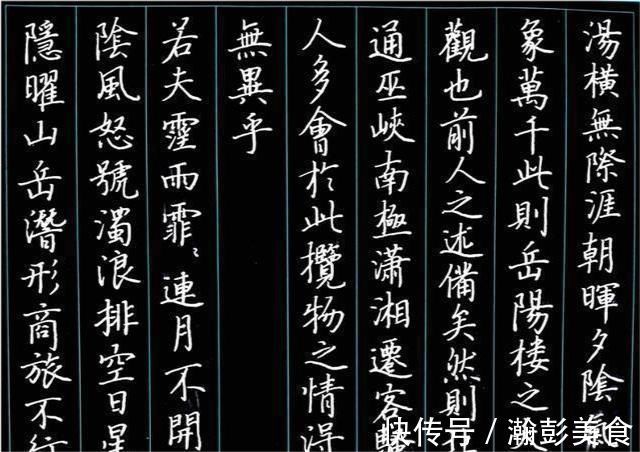 湯橫無際涯朝暉夕陰氣
象萬千此則岳陽楼之
觀也前人之述備矣然則
通巫峽南極瀟湘遷客騷
人多會於此攬物之情得
無異乎
若夫霪雨霏〻連月不開
陰風怒號濁浪排空日星
隱曜山岳潛形商旅不行
快传号 / 瀚彭美食